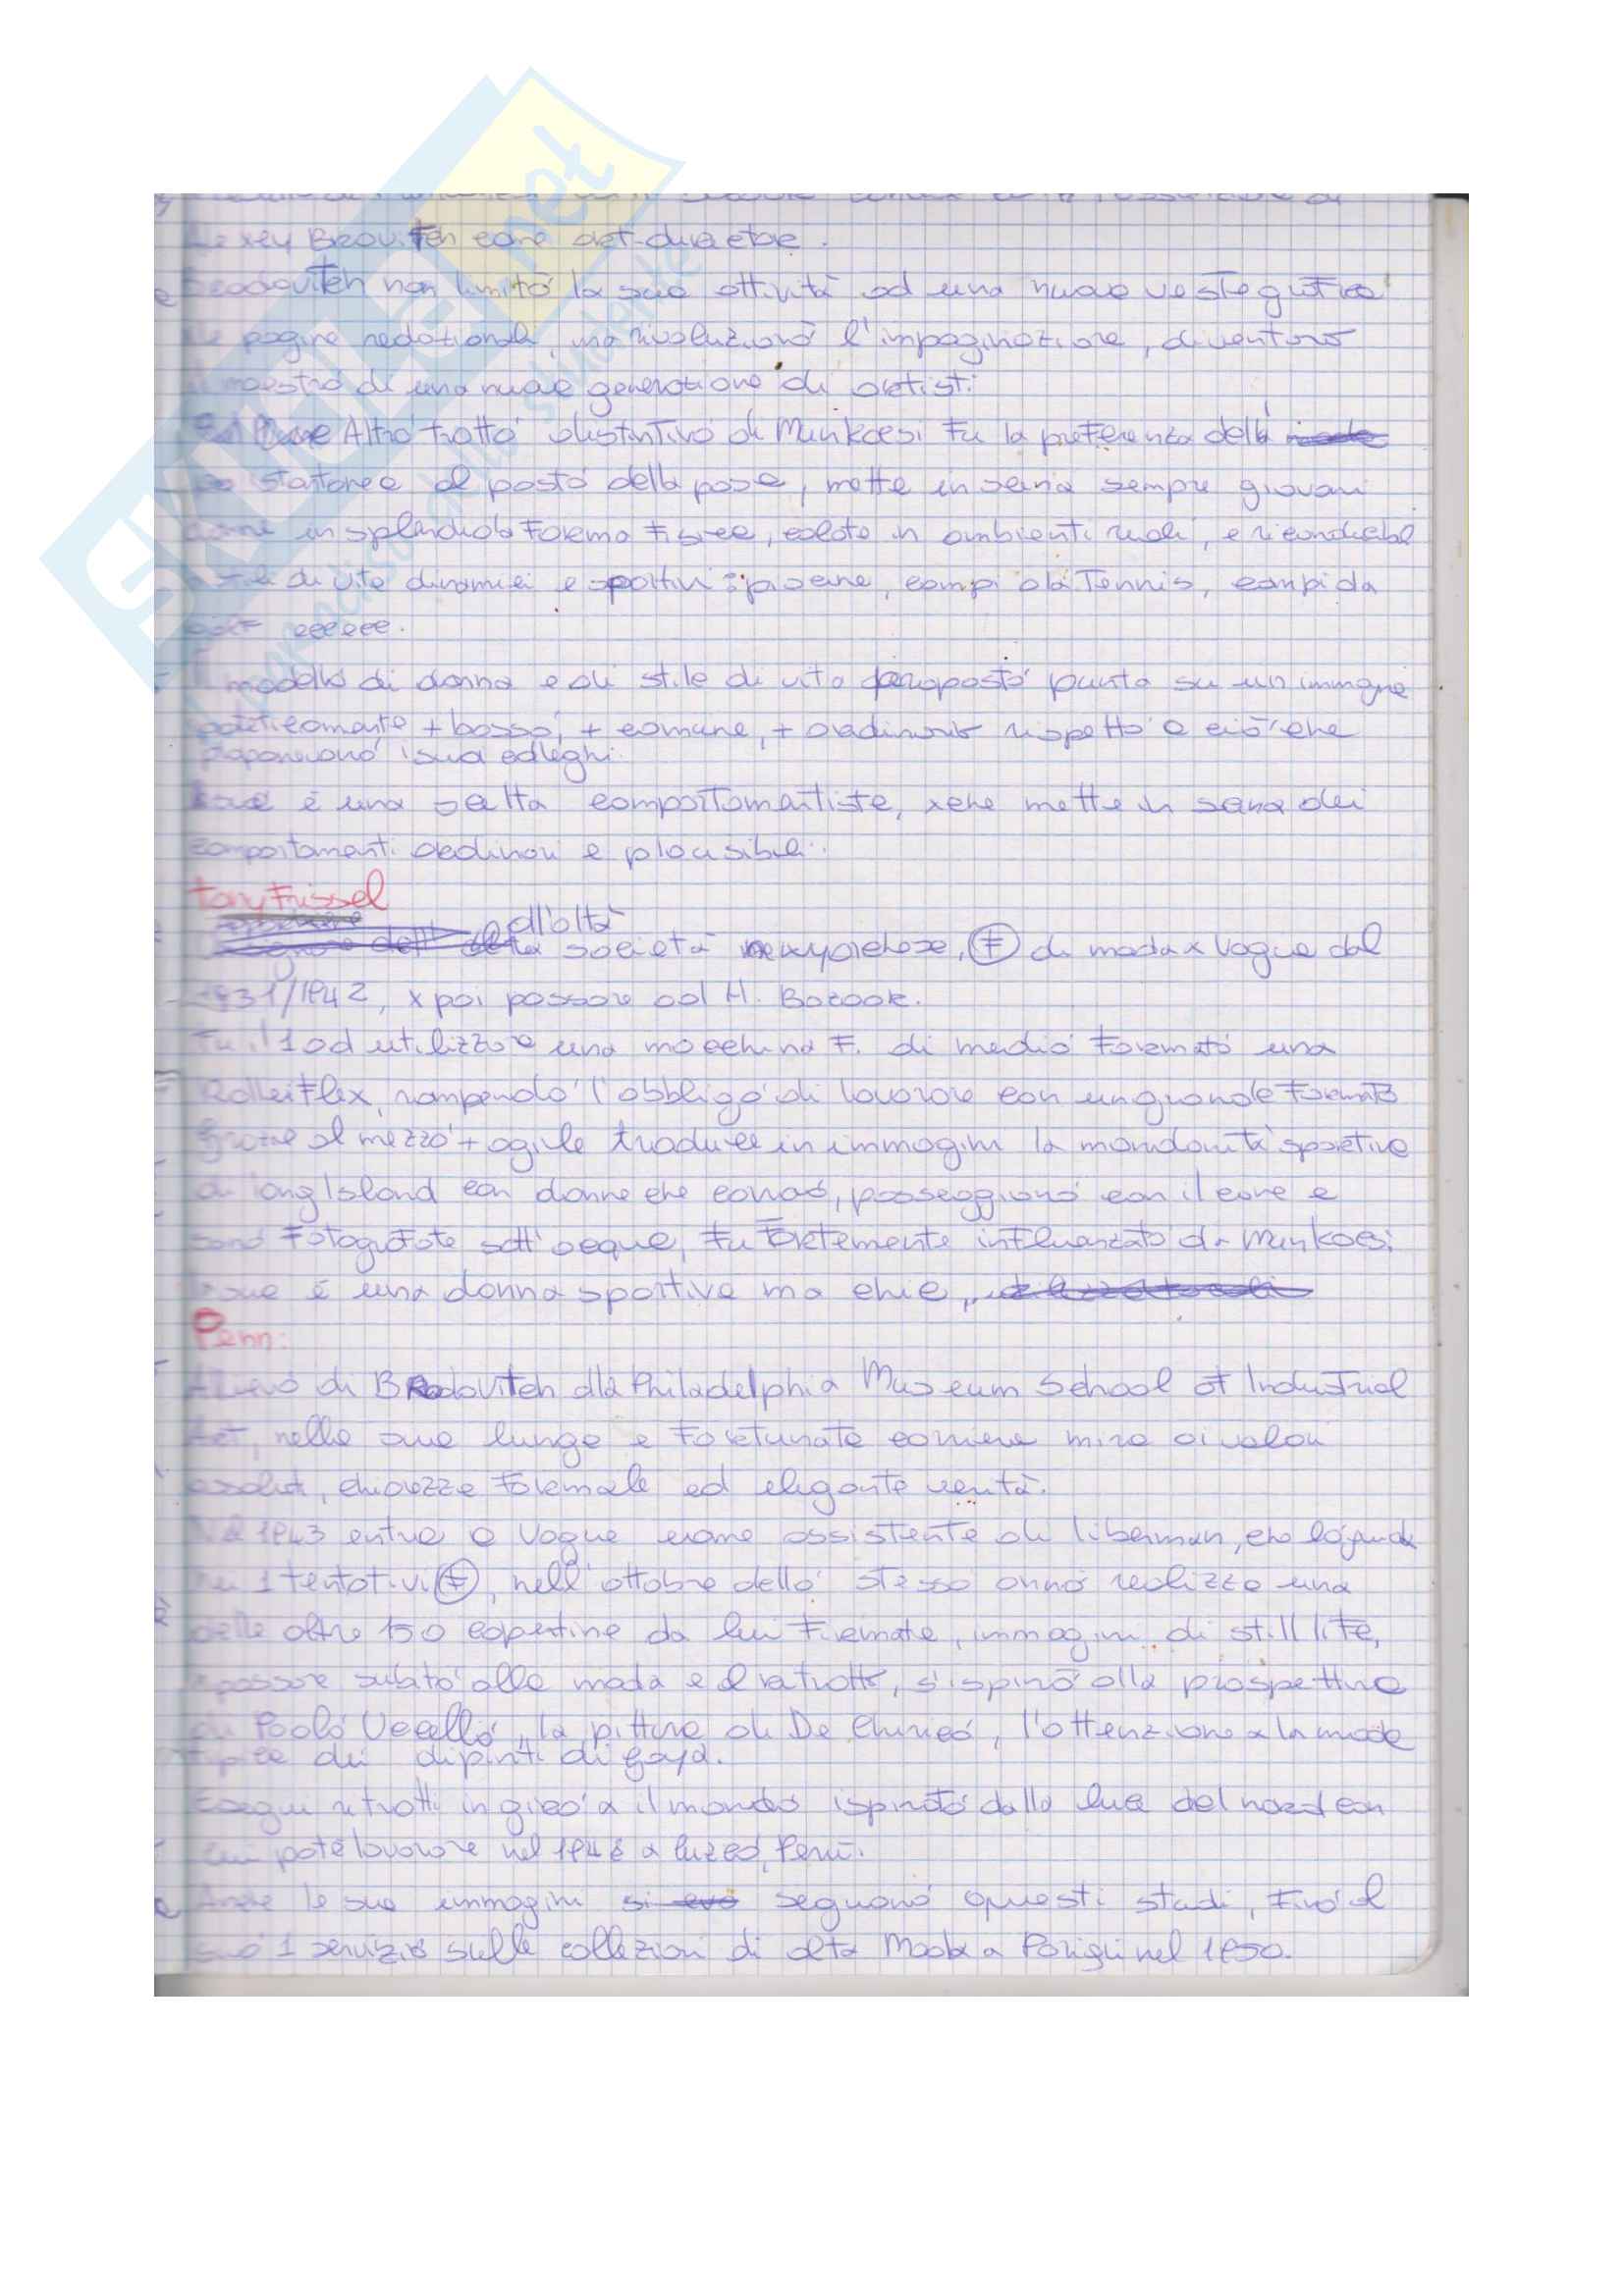 SKUOLA.net
il paradiso dello studente
Alexey Brovitch come art-director.
Brodovitch non limitò la sua attività ad una nuova veste grafica
le pagine redazionali, ma rivoluzionò l'impaginazione, diventano
il maestro di una nuova generazione di artisti.
Altro tratto distintivo di Munkacsi fu la preferenza della
istantanea al posto della posa, mette in scena sempre giovani
donne in splendida forma fisica, calate in ambienti reali, e
stili di vita dinamici e sportivi: piscine, campi da Tennis, campi da
golf ecc.
Il modello di donna e di stile di vita proposto punta su un immagne
+ basso, + comune, + ordinario rispetto a ciò che
proponevano i suoi colleghi.
è una scelta comportamentista, xche mette in scena dei
comportamenti ordinari e plausibili.
Tony Frissel
all'alta
società newyorchese, F di moda x Vogue dal
1931/1942, x poi passare ad H. Bazaar.
Fu il 1 ad utilizzare una macchina F. di medio formato una
Rolleiflex, rompendo l'obbligo di lavorare con un grande formato
Grazie al mezzo + agile traduce in immagini la mondanità sportiva
di long Island con donne che corrono, passeggiano con il cane e
sono fotografate sott'acqua, fu fortemente influenzato da Munkacsi
è una donna sportiva ma chic,
Penn:
Allievo di Brodovitch alla Philadelphia Museum School of Industrial
Art, nella sua lunga e fortunata carriera mira ai valori
assoluti, chiarezza formale ed elegante verità.
Nel 1943 entra a Vogue come assistente di liberman, che lo guida
nei 1 tentativi F, nell'ottobre dello stesso anno realizza una
delle oltre 150 copertine da lui firmate, immagini di still life,
x passare subito alla moda e al ritratto, s'ispirò alla prospettiva
di Paolo Uccello, la pittura di De Chirico, l'attenzione x la moda
tipica dei dipinti di goya.
Esegui ritratti in giro x il mondo ispirato dalla luce del nord con
cui potè lavorare nel 1948 a Cuzco, Perù.
Anche le sue immagini seguono questi studi, fino al
suo 1 servizio sulle collezioni di alta Moda a Parigi nel 1950.